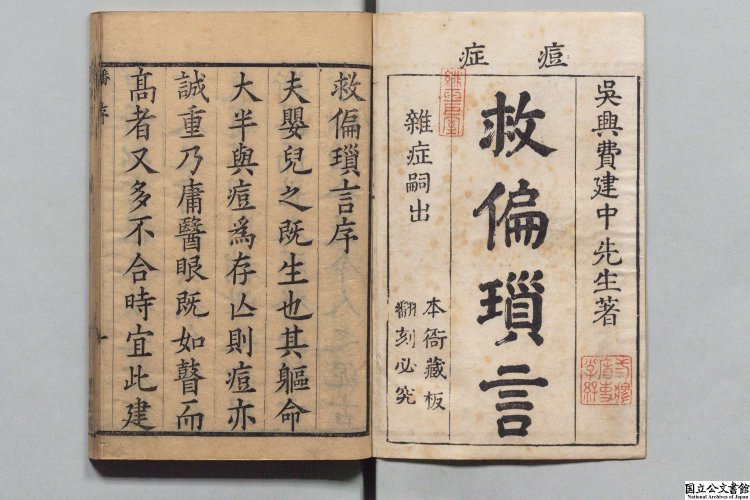 痘症
吳興費建中先生著
救偏瑣言
雜症嗣出
本衙藏板
翻刻必究
救偏瑣言序
夫嬰兒之既生也其軀命
大半與痘為存亾則痘亦
誠重乃庸醫眼既如瞽而
髙者又多不合時宜此建
序
国立公文書館
National Archives of Japan